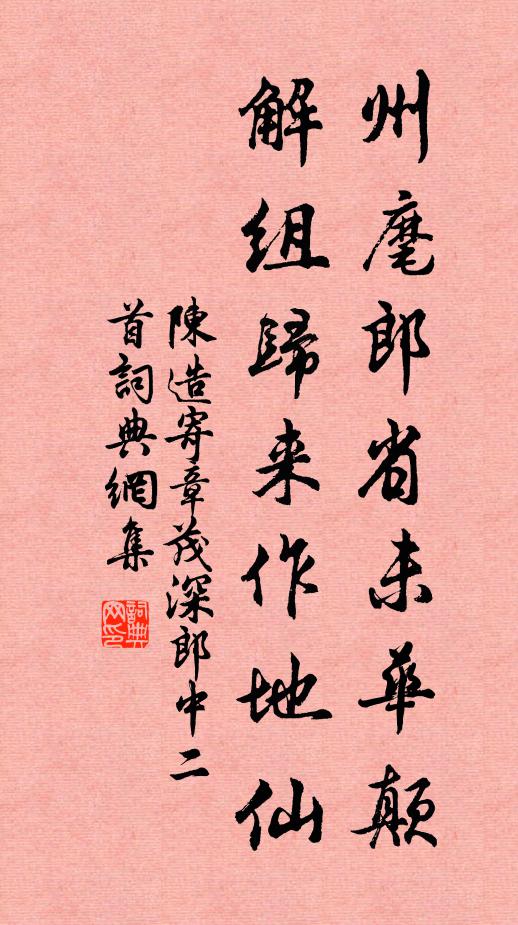 州麾郎省未華顛
解組歸来作地仙
陳造寄章茂深郎中二
首詞典網集
詞典網印